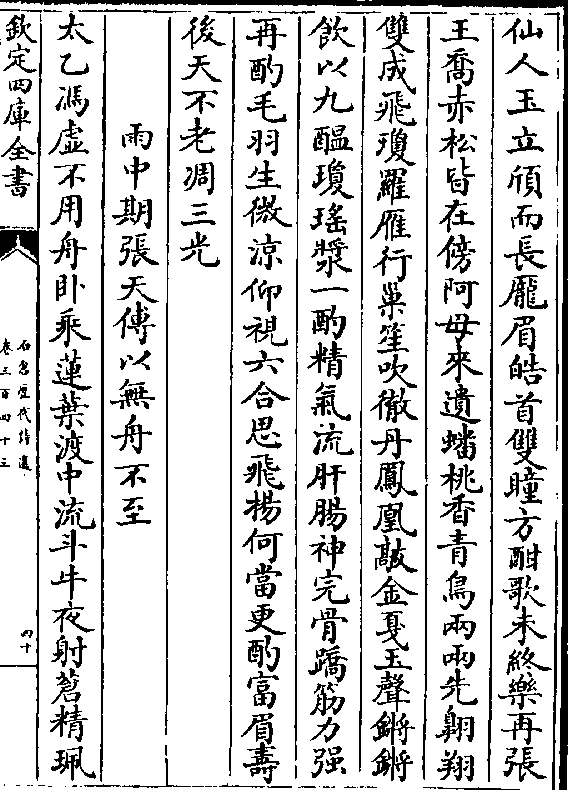 仙人玉立頎而長龎眉皓首雙瞳方酣歌未終樂再張
王喬赤松皆在傍阿母來遺蟠桃香青鳥兩兩先翺翔
雙成飛瓊羅雁行巢笙吹徹丹鳳凰敲金戛玉聲鏘鏘
飲以九醖瓊瑤漿一酌精氣流肝腸神完骨蹻筋力强
再酌毛羽生微涼仰視六合思飛揚何當更酌富眉壽
後天不老凋三光
雨中期張天傳以無舟不至
太乙馮虛不用舟卧乘蓮葉渡中流斗牛夜射蒼精珮
欽定四庫全書
石倉歷代詩選
卷三百四十三
四十